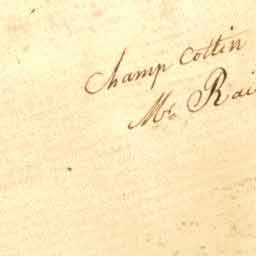 Champ Cottin
Mr. Rai